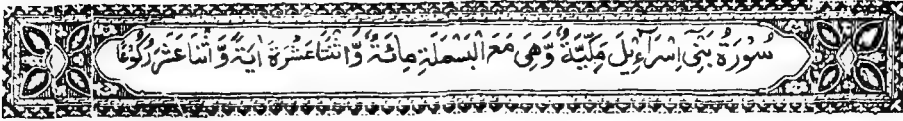 سُوْرَةُ بَنِيْٓ اِسْرَآءِيْلَ مَكِّيَّةٌ وَّهِيَ مَعَ الْبَسْمَلَةِ مِائَةٌ وَّاثْنَتَا عَشْرَةَ اٰيَةً وَّاثْنَا عَشَرَ رُكُوْعًا